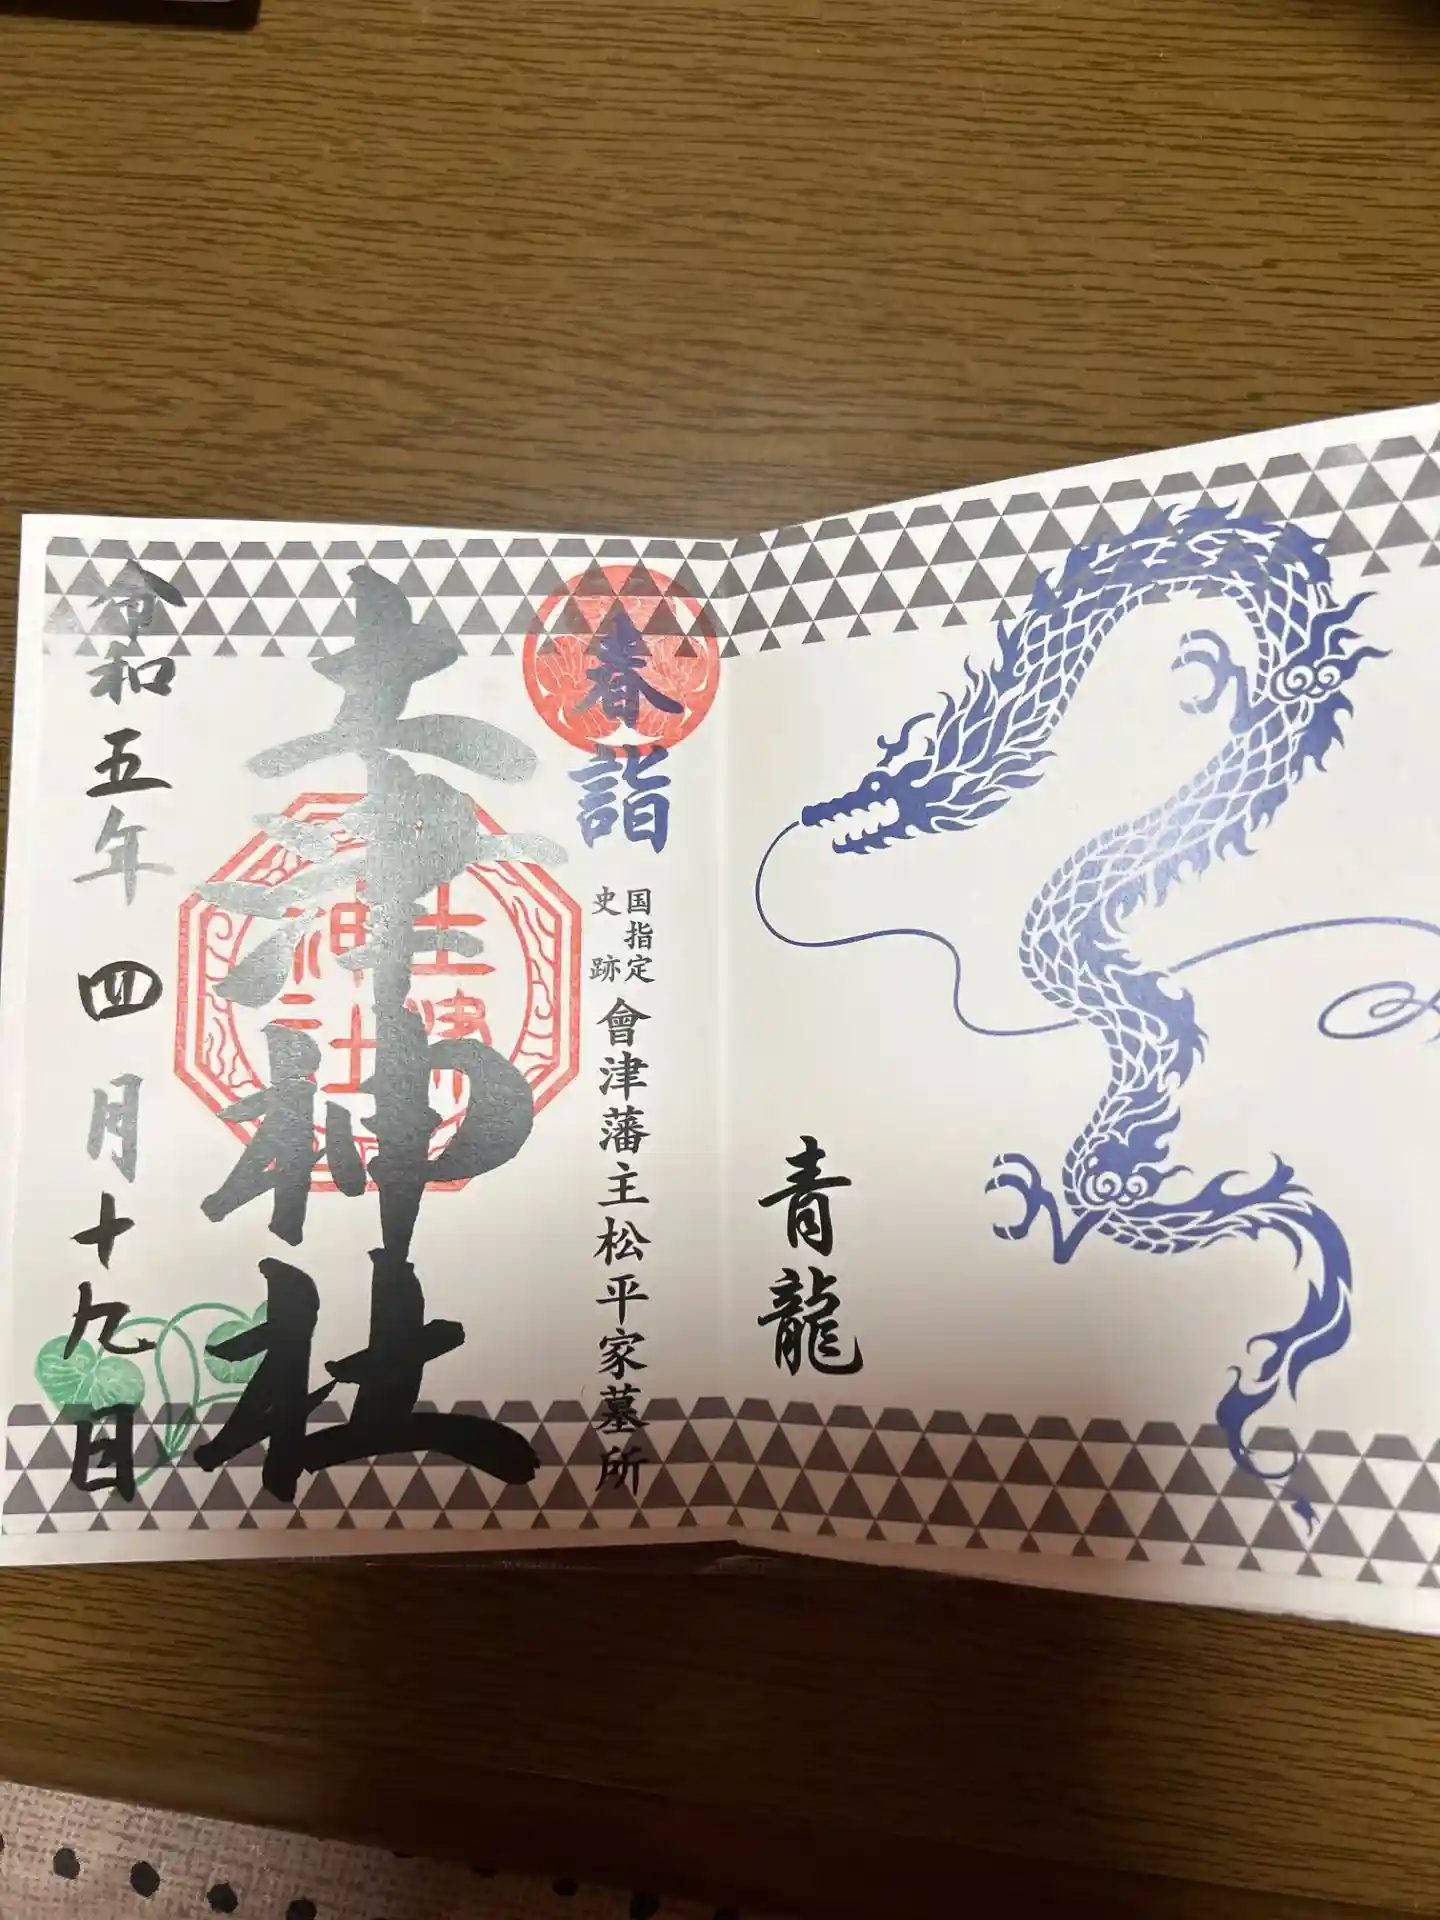 青龍
春詣
国指定
史跡
會津藩主松平家墓所
土津神社
土津
神社
令和五年四月十九日